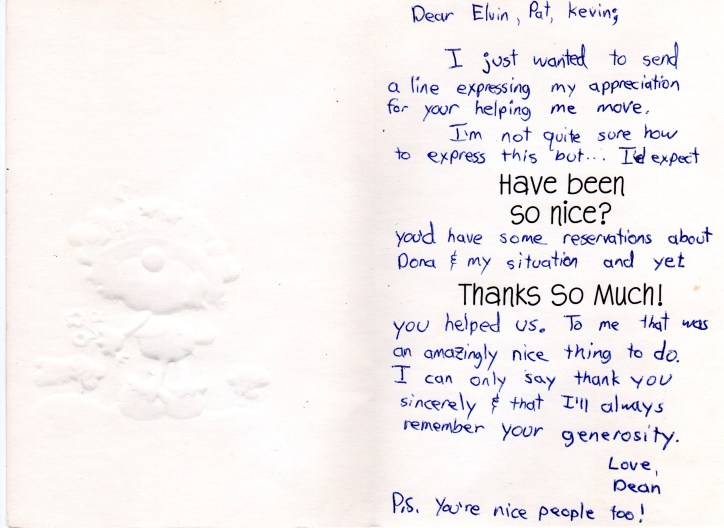 Dear Elvin, Pat, Kevin;
I just wanted to send
a line expressing my appreciation
for your helping me move.
I'm not quite sure how
to express this but... I'd expect
Have been
so nice?
you'd have some reservations about
Dona & my situation and yet
Thanks So Much!
you helped us. To me that was
an amazingly nice thing to do.
I can only say thank you
sincerely & that I'll always
remember your generosity.
Love,
Dean
P.S. You're nice people too!